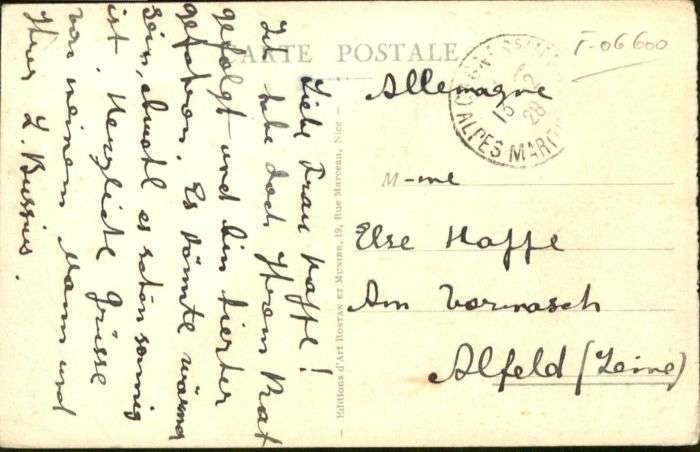 CARTE POSTALE
T-06600
Allemagne
ALPES MARIT
13 12
28
M-me
Else Hoffe
Am Vormasch
Alfeld (Leine)
Editions d'Art ROSTAN ET MUNIER, 19, Rue Marceau, Nice
Liebe Frau Hoffe!
Ich habe doch Ihrem Rat
gefolgt und bin hierher
gefahren. Es könnte wärmer
sein, obwohl es schön sonnig
ist. Herzliche Grüsse
von meinem Mann und
Ihrer L. Bussius.